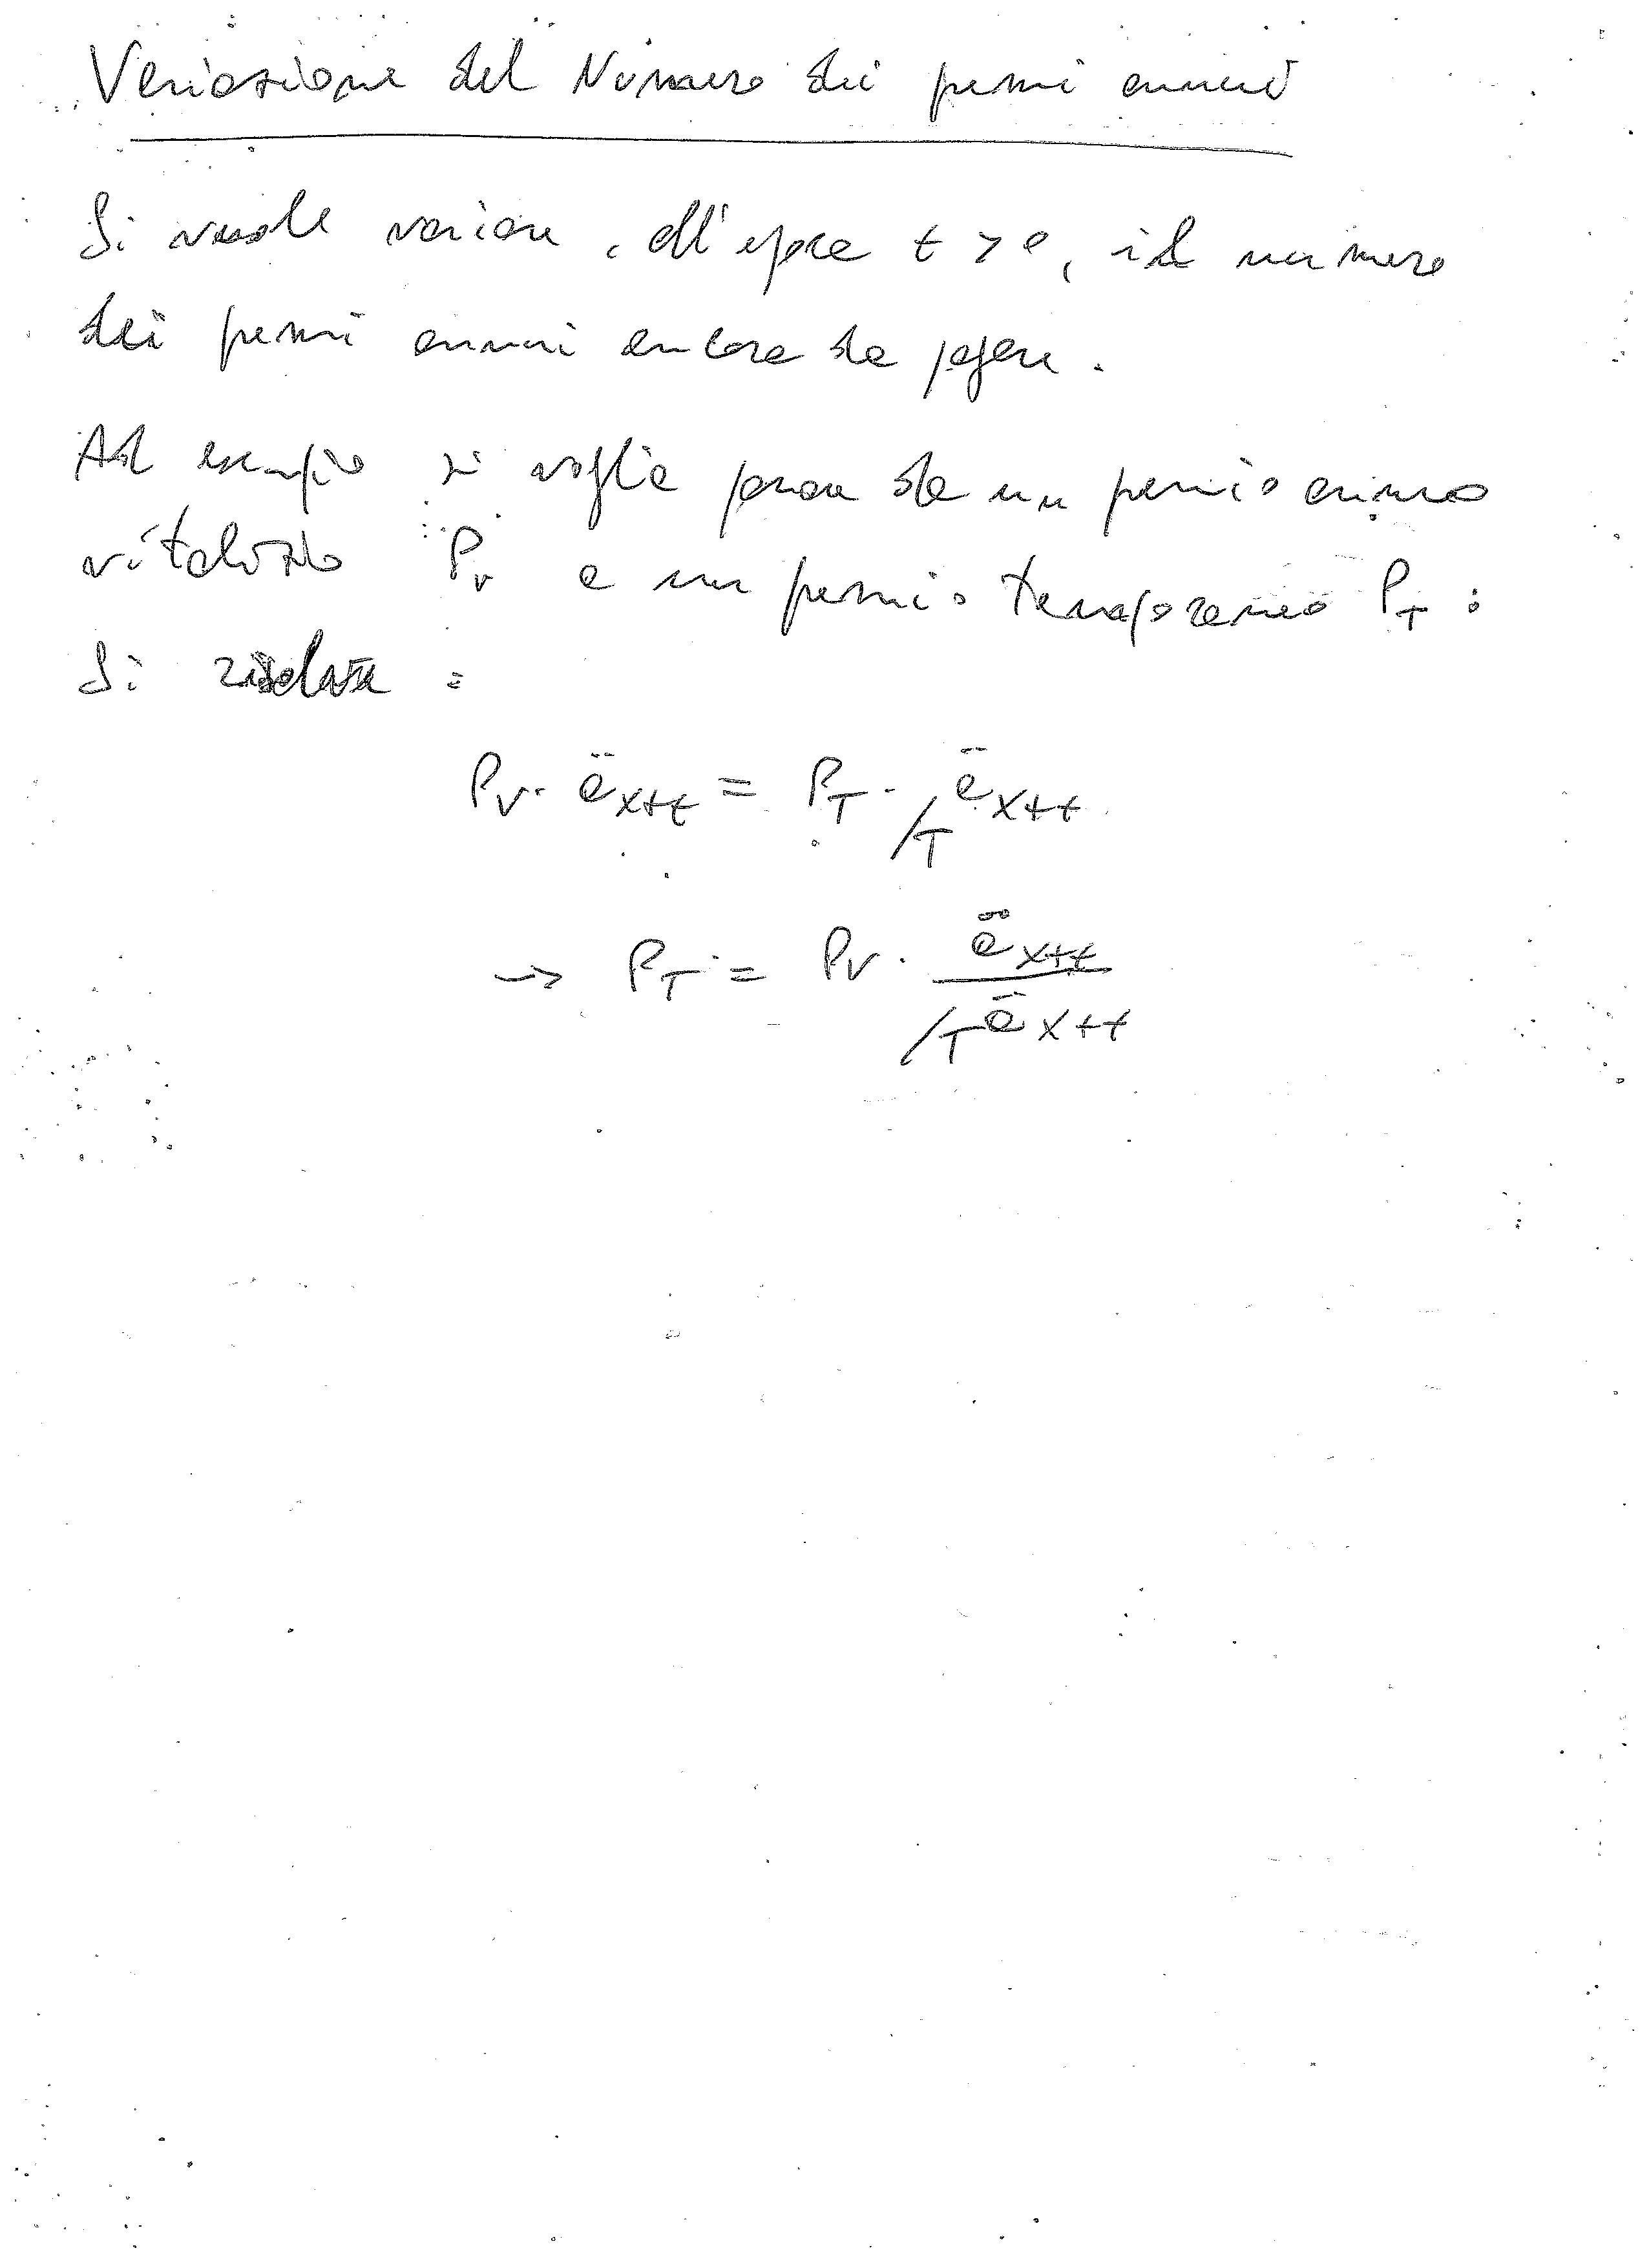 Variazione del Numero dei premi annui
Si vuole variare, all'epoca t > 0, il numero
dei premi annui ancora da pagare.
Ad esempio si voglia passare da un premio annuo
vitalizio P_V a un premio temporaneo P_T :
Si
P_V · ä_{x+t} = P_T · /T ä_{x+t}
→ P_T = P_V · ä_{x+t} / /T ä_{x+t}